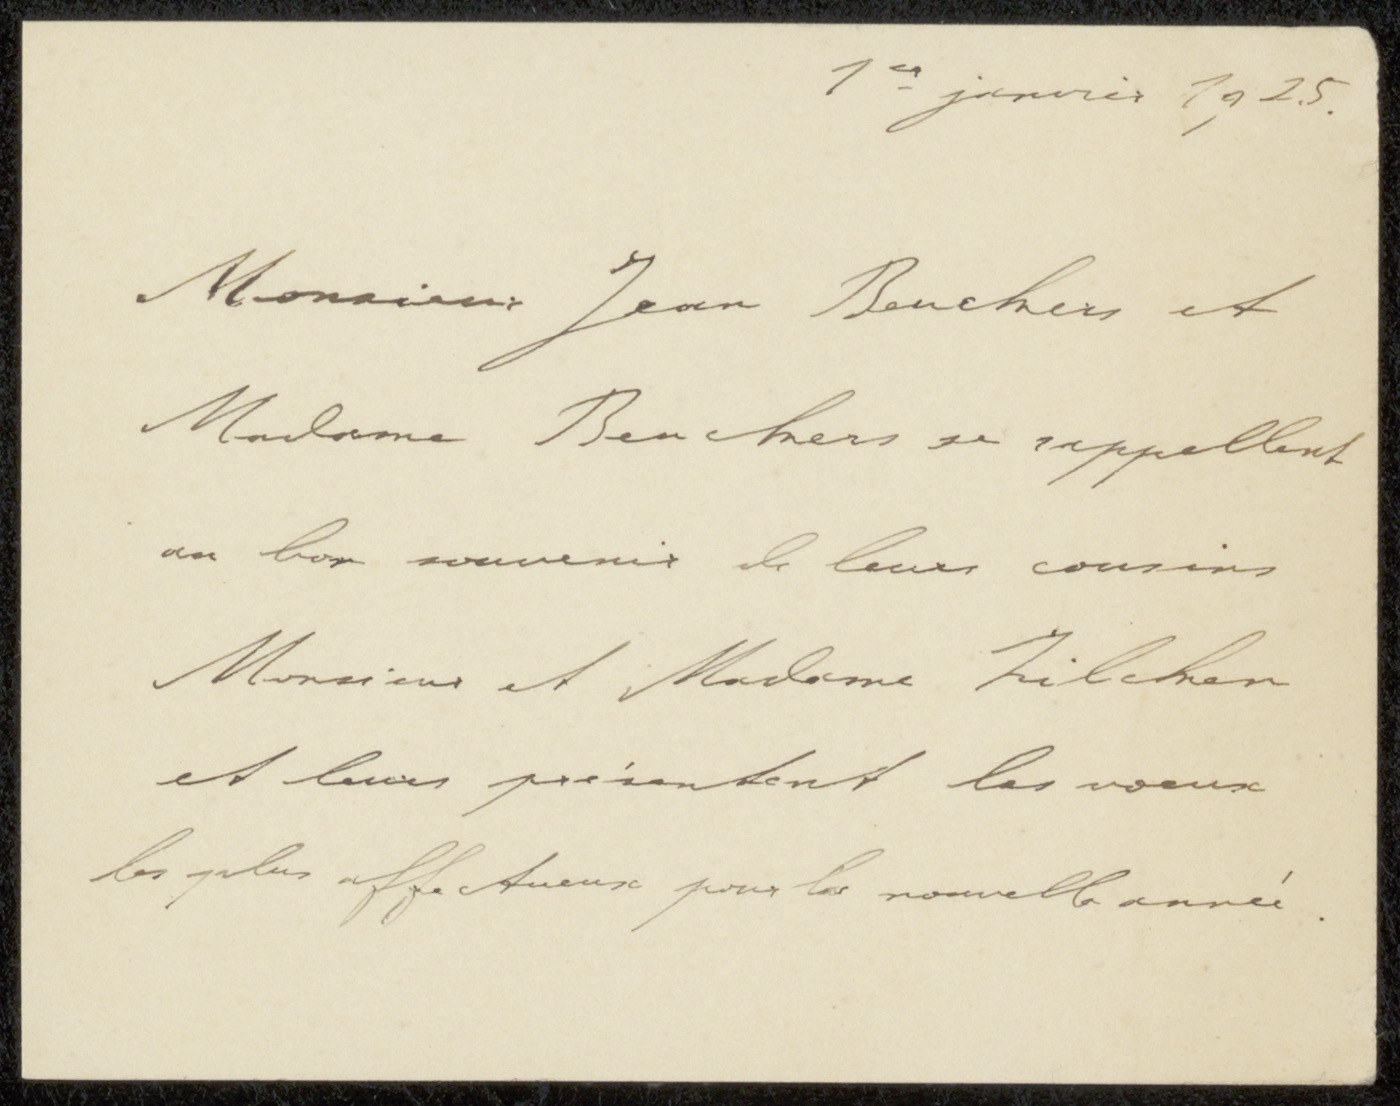 1er janvier 1925.
Monsieur Jean Beuckers et
Madame Beuckers se rappellent
au bon souvenir de leurs cousins
Monsieur et Madame Zilcken
et leurs présentent les voeux
les plus affectueux pour la nouvelle année.